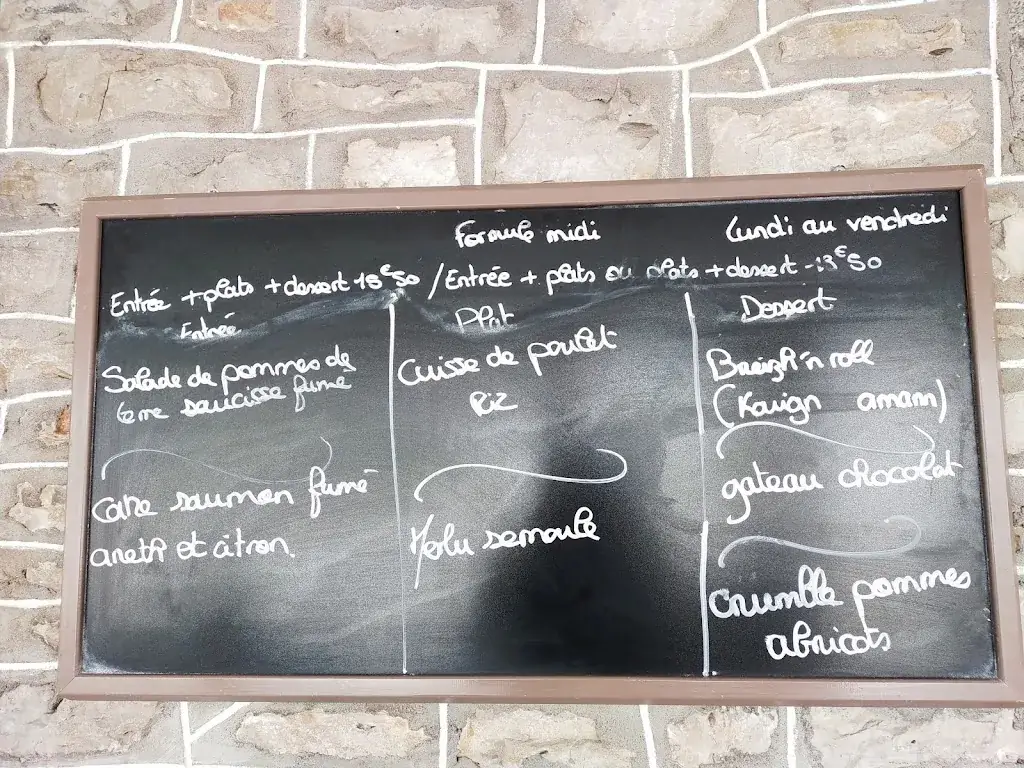 Formule midi
Lundi au vendredi
Entrée + plats + dessert - 18€50 / Entrée + plats ou plats + dessert - 13€50
Entrée
Plat
Dessert
Salade de pommes de
terre saucisse fumé
Cake saumon fumé
aneth et citron.
Cuisse de poulet
Riz
Merlu semoule
Breizh'n roll
(Kouign amann)
gateau chocolat
Crumble pommes
abricots